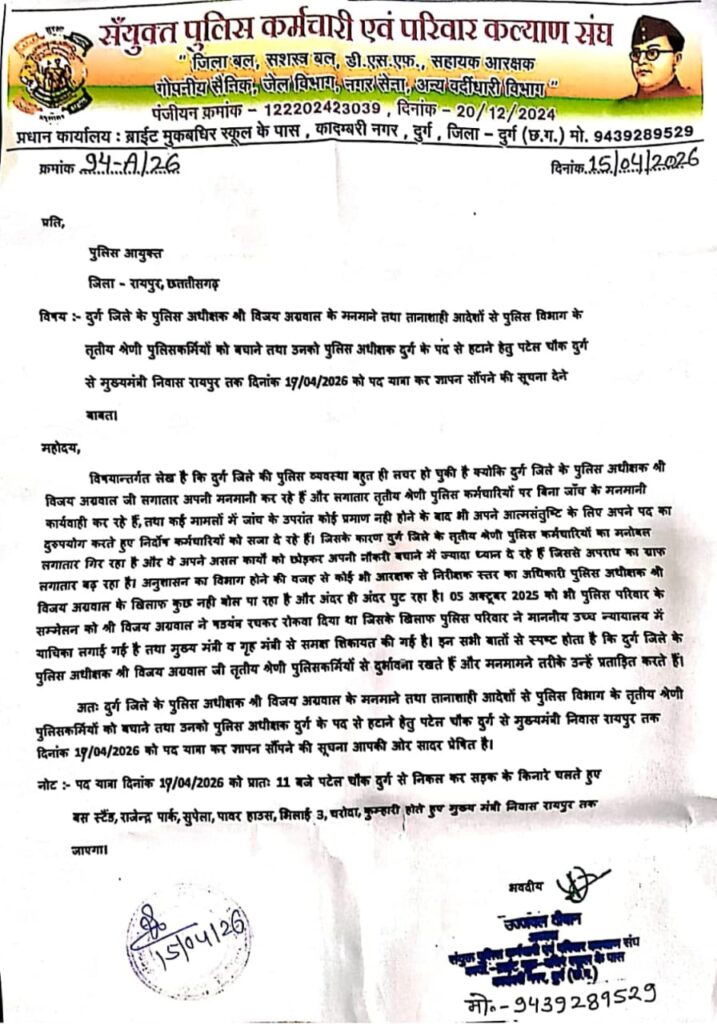 सँयुक्त पुलिस कर्मचारी एवं परिवार कल्याण संघ
" जिला बल, सशस्त्र बल, डी.एस.एफ., सहायक आरक्षक
गोपनीय सैनिक, जेल विभाग, नगर सेना, अन्य वर्दीधारी विभाग "
पंजीयन क्रमांक - 122202423039 , दिनांक - 20/12/2024
प्रधान कार्यालय : ब्राईट मुकबधिर स्कूल के पास , कादम्बरी नगर , दुर्ग , जिला - दुर्ग (छ.ग.) मो. 9439289529
क्रमांक 94-A/26 दिनांक 15/04/2026
प्रति,
पुलिस आयुक्त
जिला - रायपुर, छत्तीसगढ़
विषय :- दुर्ग जिले के पुलिस अधीक्षक श्री विजय अग्रवाल के मनमाने तथा तानाशाही आदेशों से पुलिस विभाग के
तृतीय श्रेणी पुलिसकर्मियों को बचाने तथा उनको पुलिस अधीक्षक दुर्ग के पद से हटाने हेतु पटेल चौक दुर्ग
से मुख्यमंत्री निवास रायपुर तक दिनांक 17/04/2026 को पद यात्रा कर ज्ञापन सौंपने की सूचना देने
बाबत।
महोदय,
विषयान्तर्गत लेख है कि दुर्ग जिले की पुलिस व्यवस्था बहुत ही लचर हो चुकी है क्योकि दुर्ग जिले के पुलिस अधीक्षक श्री
विजय अग्रवाल जी लगातार अपनी मनमानी कर रहे हैं और लगातार तृतीय श्रेणी पुलिस कर्मचारियों पर बिना जाँच के मनमानी
कार्यवाही कर रहे हैं, तथा कई मामलों में जांच के उपरांत कोई प्रमाण नही होने के बाद भी अपने आत्मसंतुष्टि के लिए अपने पद का
दुरुपयोग करते हुए निर्दोष कर्मचारियों को सजा दे रहे हैं। जिसके कारण दुर्ग जिले के तृतीय श्रेणी पुलिस कर्मचारियों का मनोबल
लगातार गिर रहा है और वे अपने असल कार्यो को छोड़कर अपनी नौकरी बचाने में ज्यादा ध्यान दे रहे हैं जिससे अपराध का ग्राफ
लगातार बढ़ रहा है। अनुशासन का विभाग होने की वजह से कोई भी आरक्षक से निरीक्षक स्तर का अधिकारी पुलिस अधीक्षक श्री
विजय अग्रवाल के खिलाफ कुछ नही बोल पा रहा है और अंदर ही अंदर घुट रहा है। 05 अक्टूबर 2025 को भी पुलिस परिवार के
सम्मेलन को श्री विजय अग्रवाल ने षडयंत्र रचकर रोकवा दिया था जिसके खिलाफ पुलिस परिवार ने माननीय उच्च न्यायालय में
याचिका लगाई गई है तथा मुख्य मंत्री व गृह मंत्री से समक्ष शिकायत की गई है। इन सभी बातों से स्पष्ट होता है कि दुर्ग जिले के
पुलिस अधीक्षक श्री विजय अग्रवाल जी तृतीय श्रेणी पुलिसकर्मियों से दुर्भावना रखते हैं और मनमामने तरीके उन्हें प्रताड़ित करते हैं।
अतः दुर्ग जिले के पुलिस अधीक्षक श्री विजय अग्रवाल के मनमाने तथा तानाशाही आदेशों से पुलिस विभाग के तृतीय श्रेणी
पुलिसकर्मियों को बचाने तथा उनको पुलिस अधीक्षक दुर्ग के पद से हटाने हेतु पटेल चौक दुर्ग से मुख्यमंत्री निवास रायपुर तक
दिनांक 17/04/2026 को पद यात्रा कर ज्ञापन सौंपने की सूचना आपकी ओर सादर प्रेषित है।
नोट :- पद यात्रा दिनांक 17/04/2026 को प्रातः 11 बजे पटेल चौक दुर्ग से निकल कर सड़क के किनारे चलते हुए
बस स्टैंड, राजेन्द्र पार्क, सुपेला, पावर हाउस, भिलाई 3, चरोदा, कुम्हारी होते हुए मुख्य मंत्री निवास रायपुर तक
जाएगा।
भवदीय
15/04/26
उज्जवल दीवान
अध्यक्ष
संयुक्त पुलिस कर्मचारी एवं परिवार कल्याण संघ
कार्या.-ब्राईट मूक-बधिर स्कूल के पास
कादम्बरी नगर, दुर्ग (छ.ग.)
मो.-9439289529